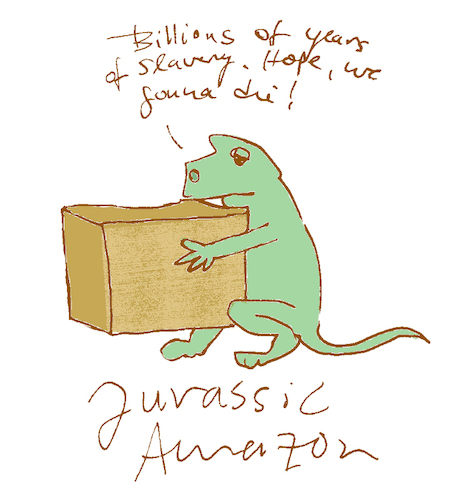 Billions of years
of slavery. Hope, we
gonna die!
Jurassic
Amazon